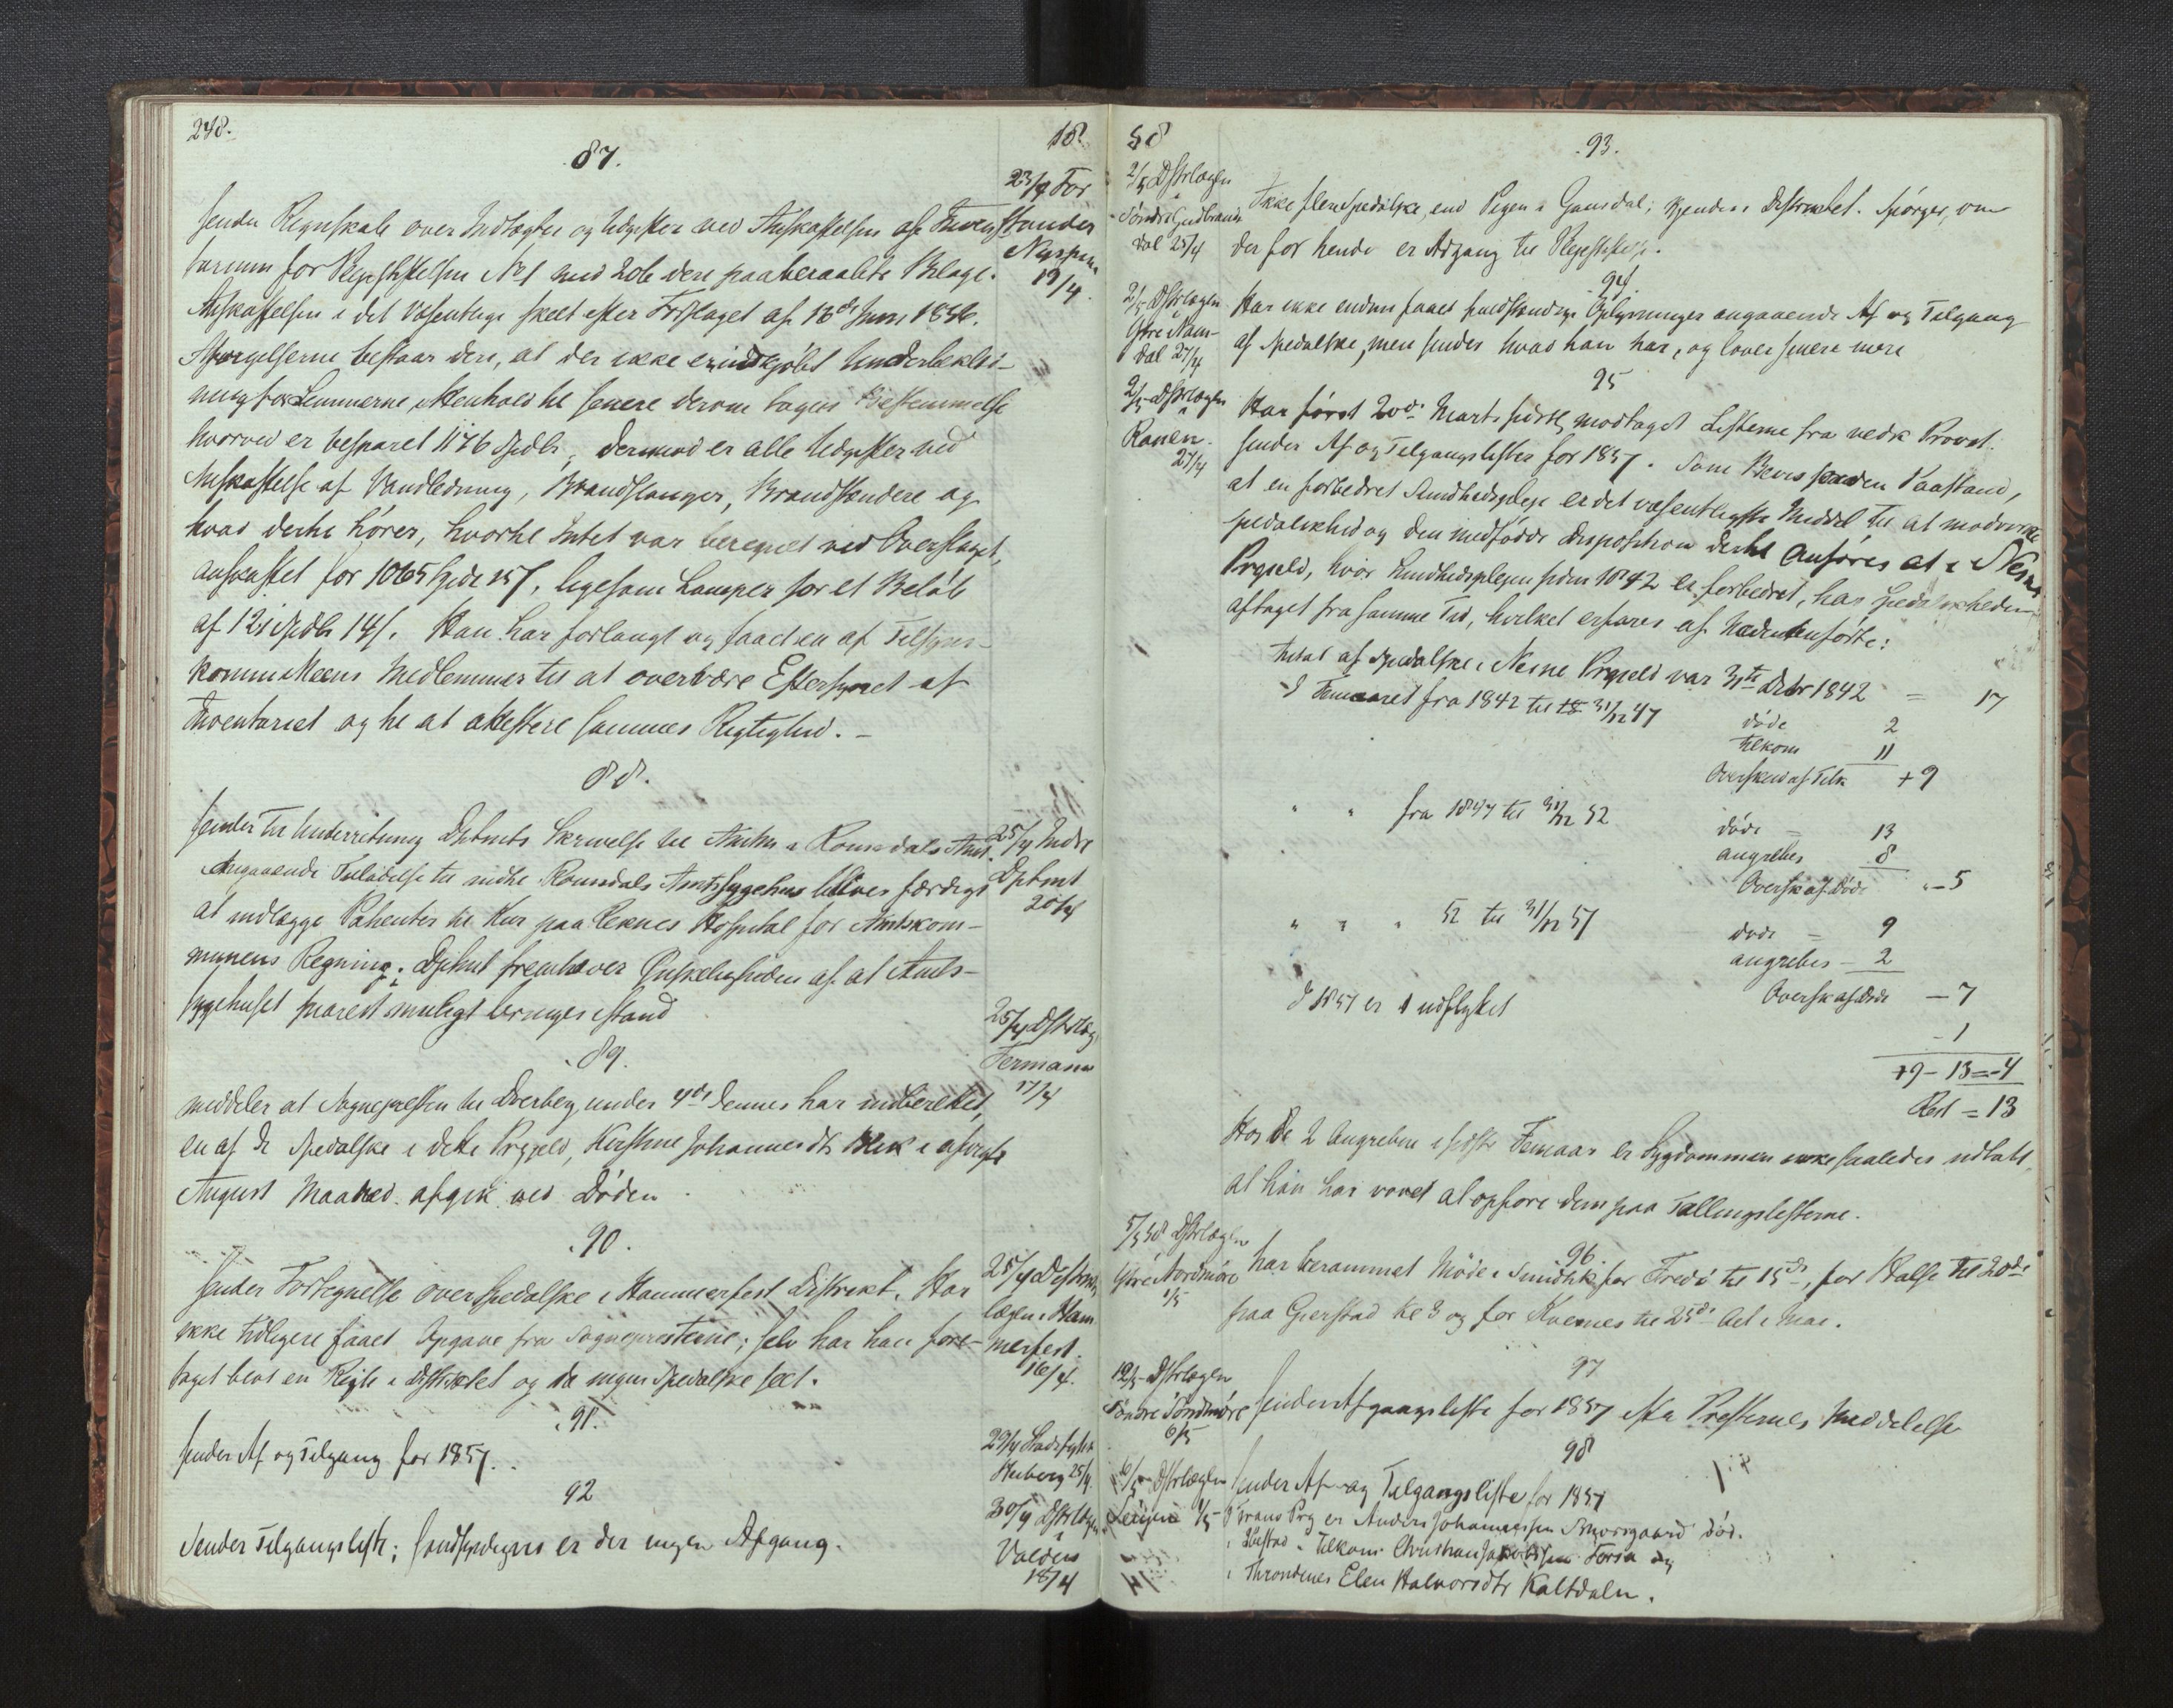 248.
18
87.
23/4 For
sender Regnskab over Indtægter og Udgifter ved Anskaffelsen af Inven
stander
tarium for Plejestiftelsen No 1 med 206 dere paaberaabte Bilage.
19/4
Anskaffelsen i det Væsentlige skeet efter Forslaget af 18de Juni 1856.
bestaar deri, at der ikke er indkjøbt Underbeklæd-
ning for Lemmerne, Henhold til senere derom tagen Bestemmelse
hvorved er besparet 1176 Spdlr, derimod er alle Udgifter ved
Anskaffelse af Vandledning, Brandslanger, Brandspandere og
hvad dertil hører, hvortil Intet var beregnet ved Overslaget,
anskaffet for 1065 Spdr 15 s, ligesom Lamper for et Beløb
af 121 Spdlr 14 s. Han har forlangt og faaet en af Tilsyns-
kommiteens Medlemmer til at overvære Eftersynet af
Inventariet og til at attestere sammes Rigtighed. -
88.
sender til Underretning Dptmts Skrivelse til Amtm i Romsdals Amt
25/4 Indre
Angaaende Tilladelse til indtil Romsdals Amtssygehus bliver færdigt
Dptmt
20/4
at indlægge Patienter til Kur paa Reknes Hospital for Amtskom-
munens Regning; Dptmt fremhæver Ønskeligheden af at Amts-
sygehuset snarest muligt bringes istand
25/4 Dstrlæg
89.
Fermann
17/4
meddeler at Sognepresten til Dverberg under 4de dennes har indberettet,
en af de Spedalske i dette Prgjeld, Kirstine Johannesdtr i afvigte
August Maaned afgik ved Døden.
90.
sender Fortegnelse over Spedalske i Hammerfest Distrikt. Har
25/4 Distrikts
lægen i Ham
ikke tidligere faaet Opgave fra Sognepresterne; selv har han fore-
merfest
16/4.
taget blot en Rejse i Distriktet og da ingen Spedalske seet.
91.
29/4 Stadsfysik
sender Af og Tilgang for 1857.
25/4
92
30/4 Dstrlægen
Sender Tilgangsliste; sandsynligvis er der ingen Afgang.
Valders
18/4
58
93.
2/5 Dstrlægen
i
Søndre Gudbrands
dal 25/4
Ikke flere Spedalske, end Pigen i Gausdal, kjendes i Distriktet. Spørger, om
der for hende er Adgang til Plejestiftelse.
94.
2/5 Dstrlægen
Ytre Nam-
dal 27/4
Har ikke endnu faaet fuldstændige Oplysninger angaaende Af og Tilgang
af Spedalske, men sender hvad han har, og lover senere mere
95
2/5 Dstrlægen
i
Ranen.
27/4
Har først 20de Marts sidstl modtaget Listerne fra vedk Provst.
sender Af og Tilgangslister for 1857. Som Bevis paa den Paastand,
at en forbedret Sundhedspleje er det væsentligste Middel til at modvirke
Spedalskhed og den medfødde Disposition dertil anføres at i Nesne
Prgjeld, hvor Sundhedsplejen siden 1842 er forbedret, har Spedalskheden
aftaget fra samme Tid, hvilket erfares af Nedenanførte:
Antal af Spedalske i Nesne Prgjeld var 31te Decbr 1842 = 17
I Femaaret fra 1842 til 31/12 47 døde 2
tilkom 11
Overskud af Tilk + 9
" " fra 1847 til 31/12 52 døde = 13
angrebes 8
Oversk af Døde - 5
" " " 52 til 31/12 57 døde = 9
angrebes - 2
Oversk af Døde - 7
I 1857 er 1 udflyttet
- 1
+9 - 13 = -4
Rest = 13
Hos de 2 Angrebne i sidste Femaar er Sygdommen ikke saaledes udtalt,
at han har vovet at opføre dem paa Tællingslisterne.
5/5 58 Dstrlægen
96.
Ytre Nordmøre
1/5
har berammet Møde i for Fredø til 15de, for Halse til 20de
paa Gjerstad Kl 3 og for Kvernes til 25de Alt i Mai.
97
12/5 Dstrlægen
Søndre Søndmøre
6/5
sender Afgangsliste for 1857 efter Presternes Meddelelse
98
6/5 Dstrlægen
Senjen 1/5
sender Af- og Tilgangsliste for 1857
i Tranø Prg er Anders Johannessen død.
i tilkom Christian og
i Throndenes Elen Halvorsdtr Kaltdalen.